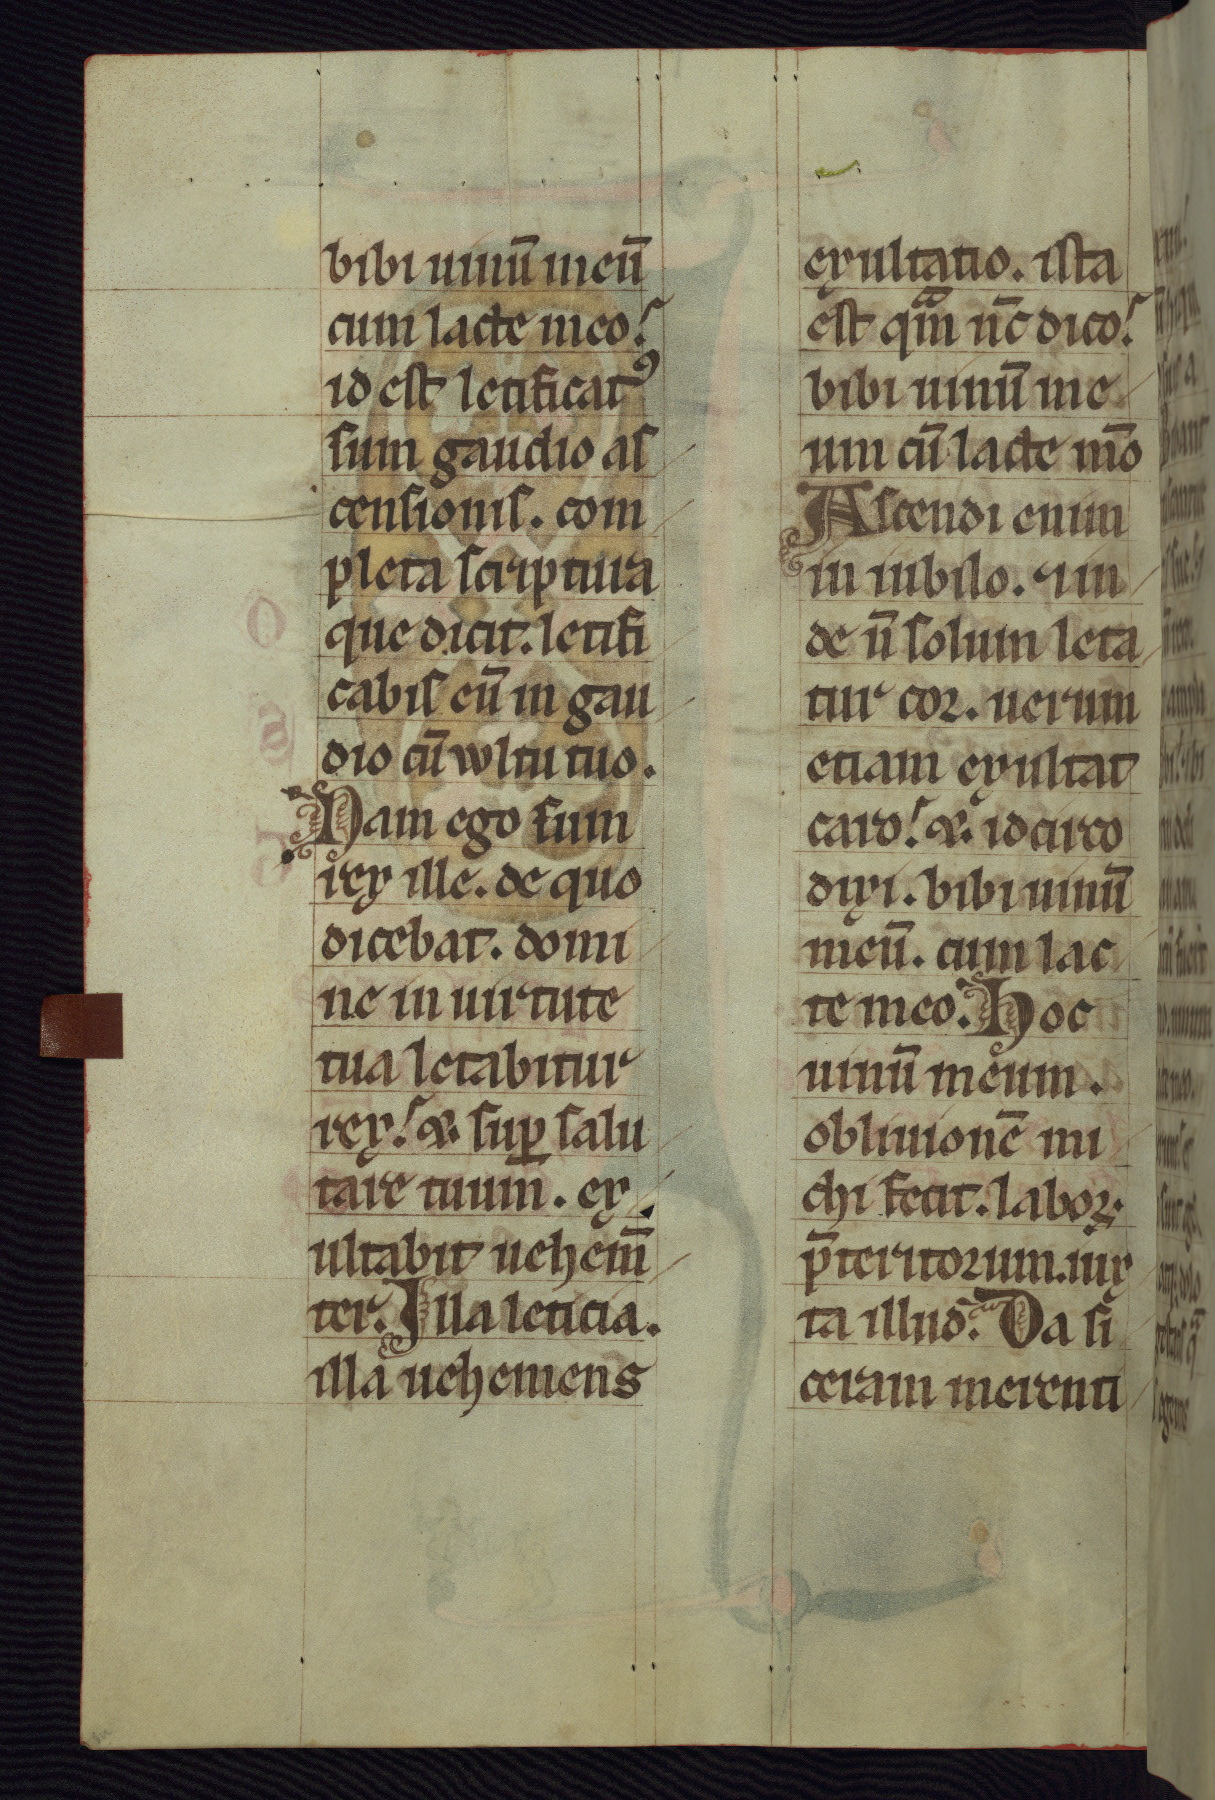 bibi uinū meū
cum lacte meo.
id est letificatꝰ
sum gaudio as
censionis. com
pleta scriptura
que dicit. letifi
cabis eū in gau
dio cū wltu tuo.
Nam ego sum
rex ille. de quo
dicebat. domi
ne in uirtute
tua letabitur
rex. &. suꝑ salu
tare tuum. ex
ultabit uehem̄
ter. Illa leticia.
illa uehemens
exultatio. ista
est qm̄ nc̄ dico.
bibi uinū me
um cū lacte mo̅
Ascendi enim
in iubilo. un
de n̄ solum leta
tur cor. uerum
etiam exultat
caro. &. idcirco
dixi. bibi uinū
meū. cum lac
te meo. Hoc
uinū meum.
obliuionē mi
chi fecit. laboꝝ.
p̄teritorum. iux
ta illud. Da si
ceram merenti